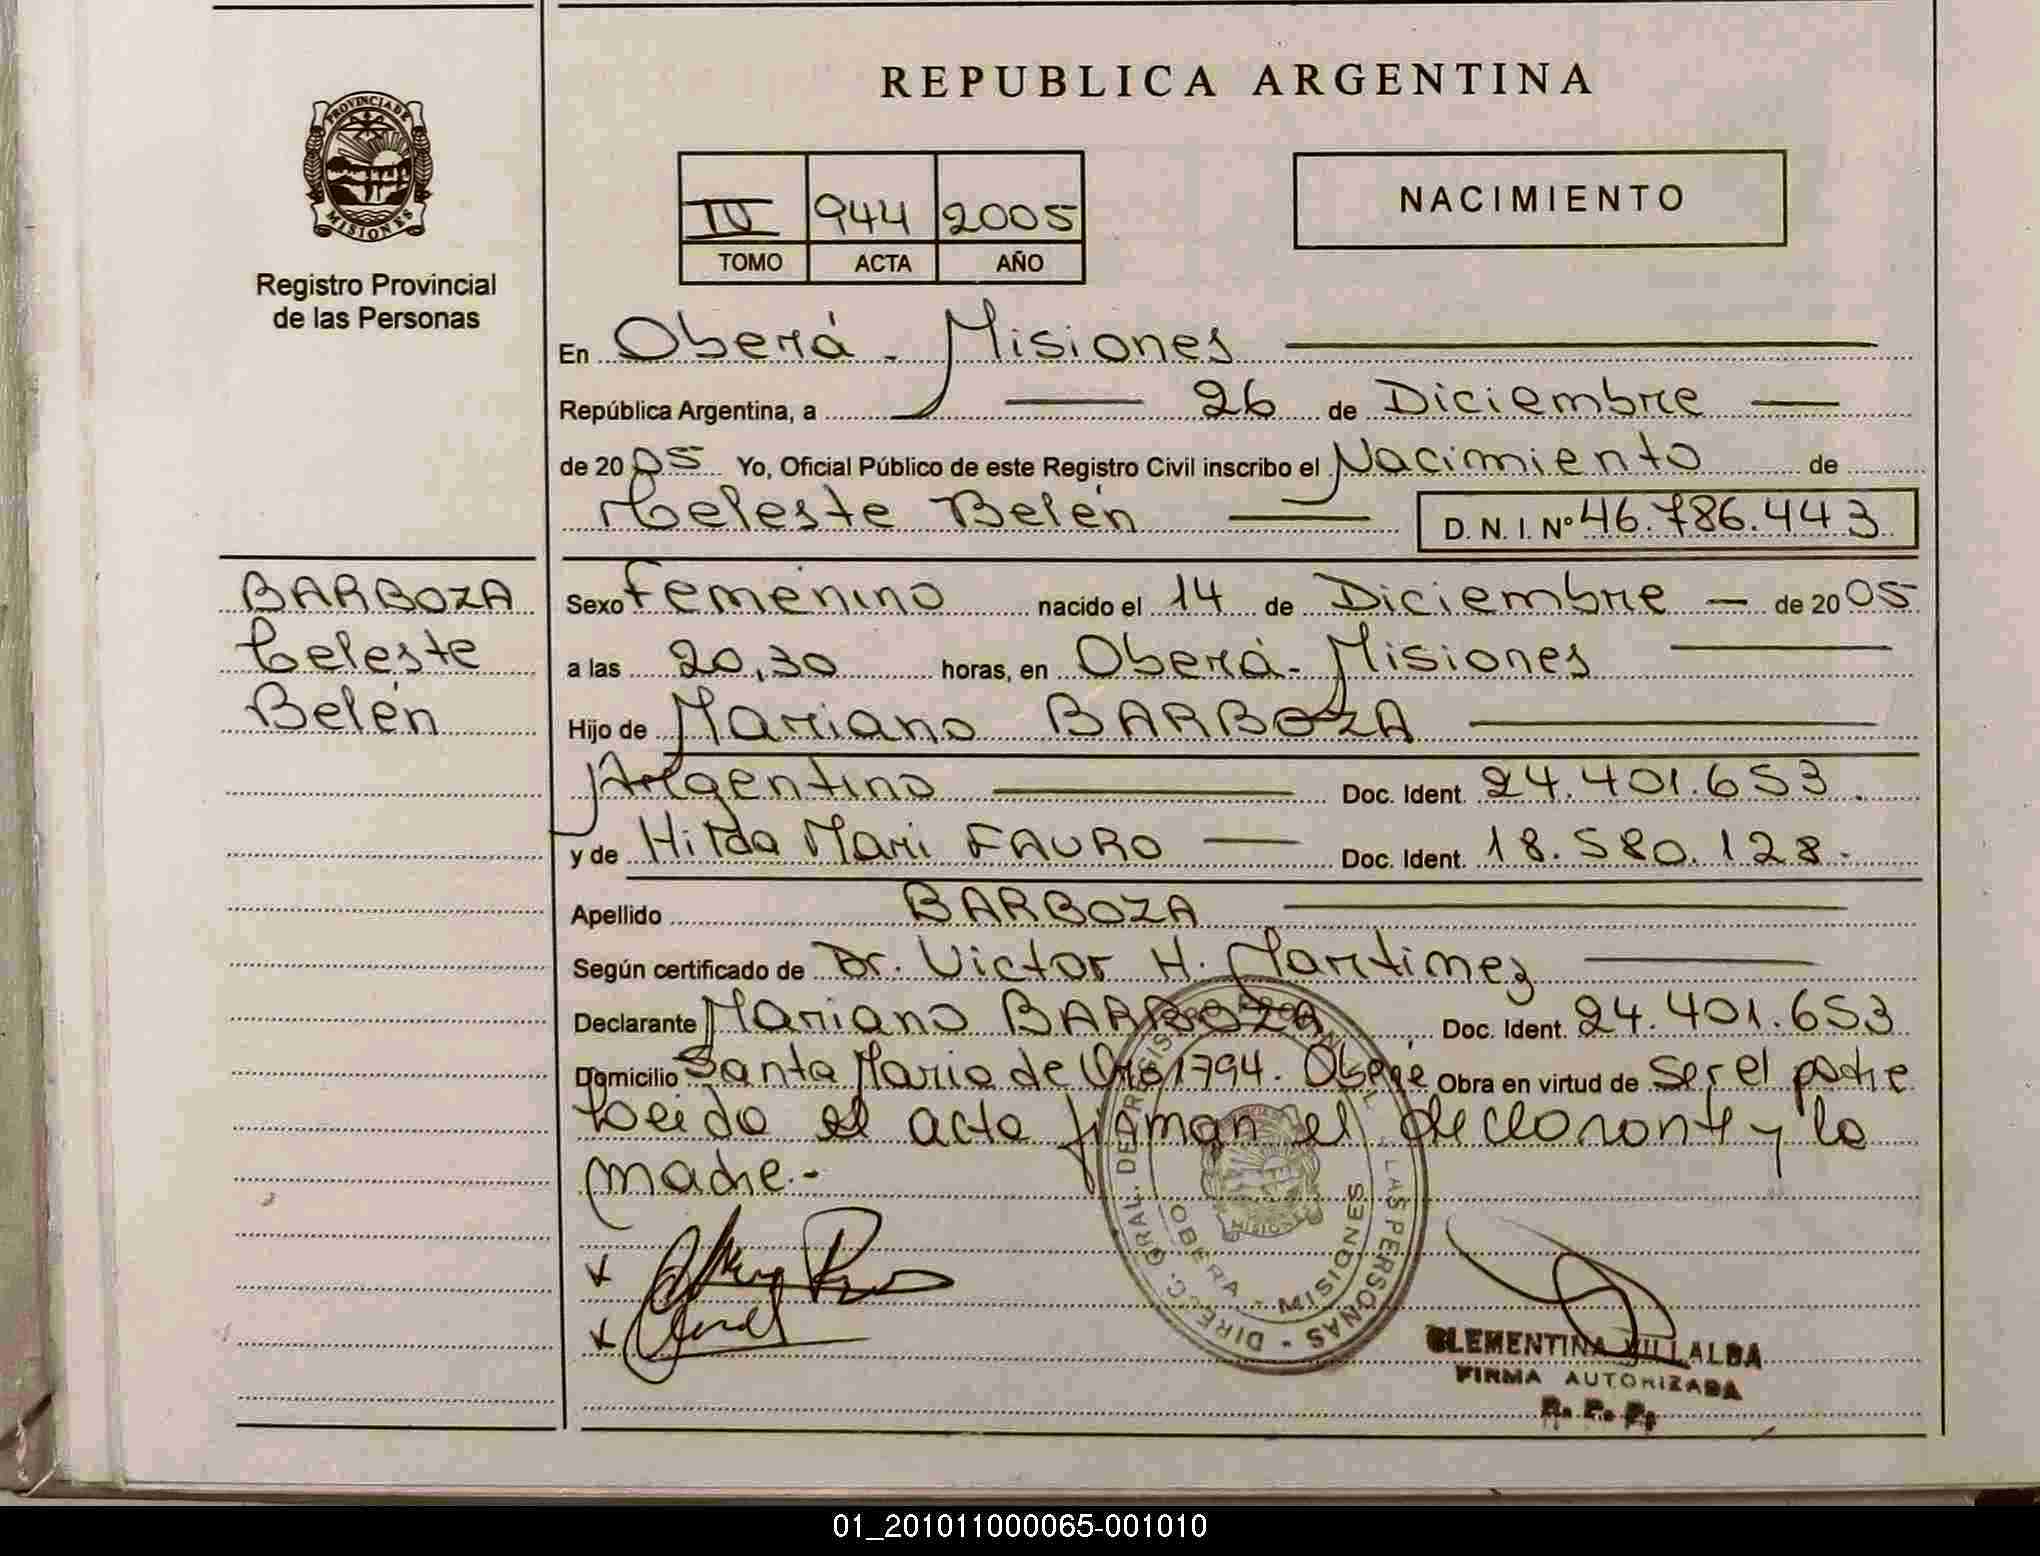 REPUBLICA ARGENTINA
PROVINCIA DE
MISIONES
Registro Provincial
de las Personas
IV 944 2005
TOMO ACTA AÑO
NACIMIENTO
En Oberá - Misiones
República Argentina, a 26 de Diciembre
de 2005 Yo, Oficial Público de este Registro Civil inscribo el Nacimiento de
Celeste Belén D. N. I. Nº 46.786.443
BARBOZA
Celeste
Belén
Sexo Femenino nacido el 14 de Diciembre de 2005
a las 20,30 horas, en Oberá - Misiones
Hijo de Mariano BARBOZA
Argentino Doc. Ident. 24.401.653.
y de Hilda Mari FAURO Doc. Ident. 18.580.128.
Apellido BARBOZA
Según certificado de Dr. Victor H. Martinez
Declarante Mariano BARBOZA Doc. Ident. 24.401.653
Domicilio Santa Maria de Oro 1794. Obera Obra en virtud de ser el padre
Leida el acta firman el declarante y la
madre.-
DIRECC. GRAL. DE REGISTRO PROVINCIAL DE LAS PERSONAS -
OBERA - MISIONES
CLEMENTINA VILLALBA
FIRMA AUTORIZADA
R. P. P.
01_201011000065-001010